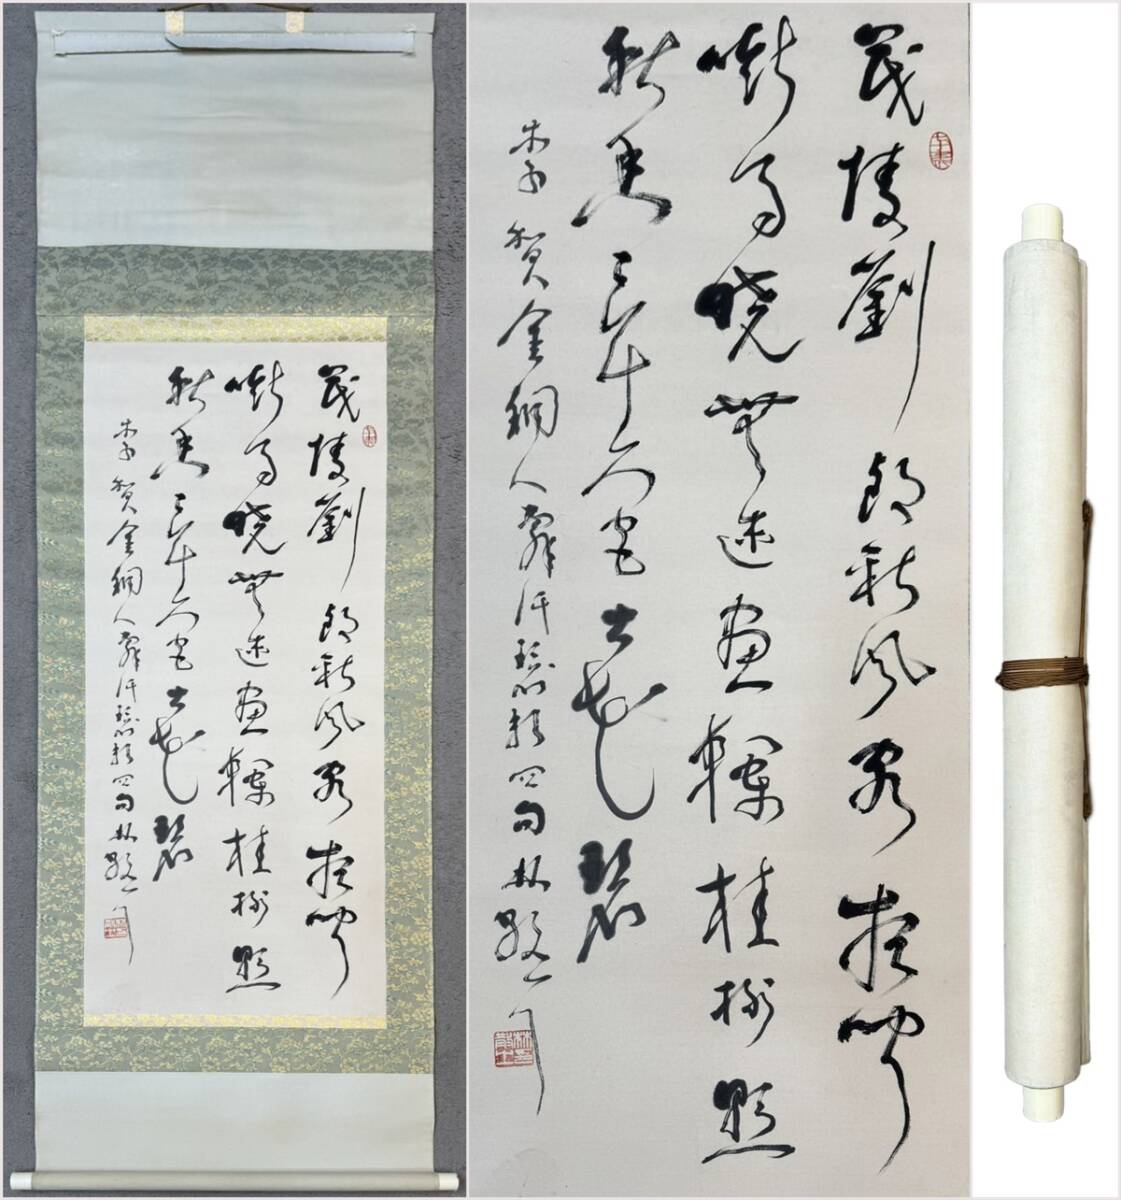 茂陵劉郎秋風客夜聞
嘶馬曉無迹画欄桂樹懸
秋香三十六宮土花碧
李賀金銅人辭四句林散
茂陵劉郎秋風客夜聞
嘶馬曉無迹画欄桂樹懸
秋香三十六宮土花碧
李賀金銅人辭四句林散